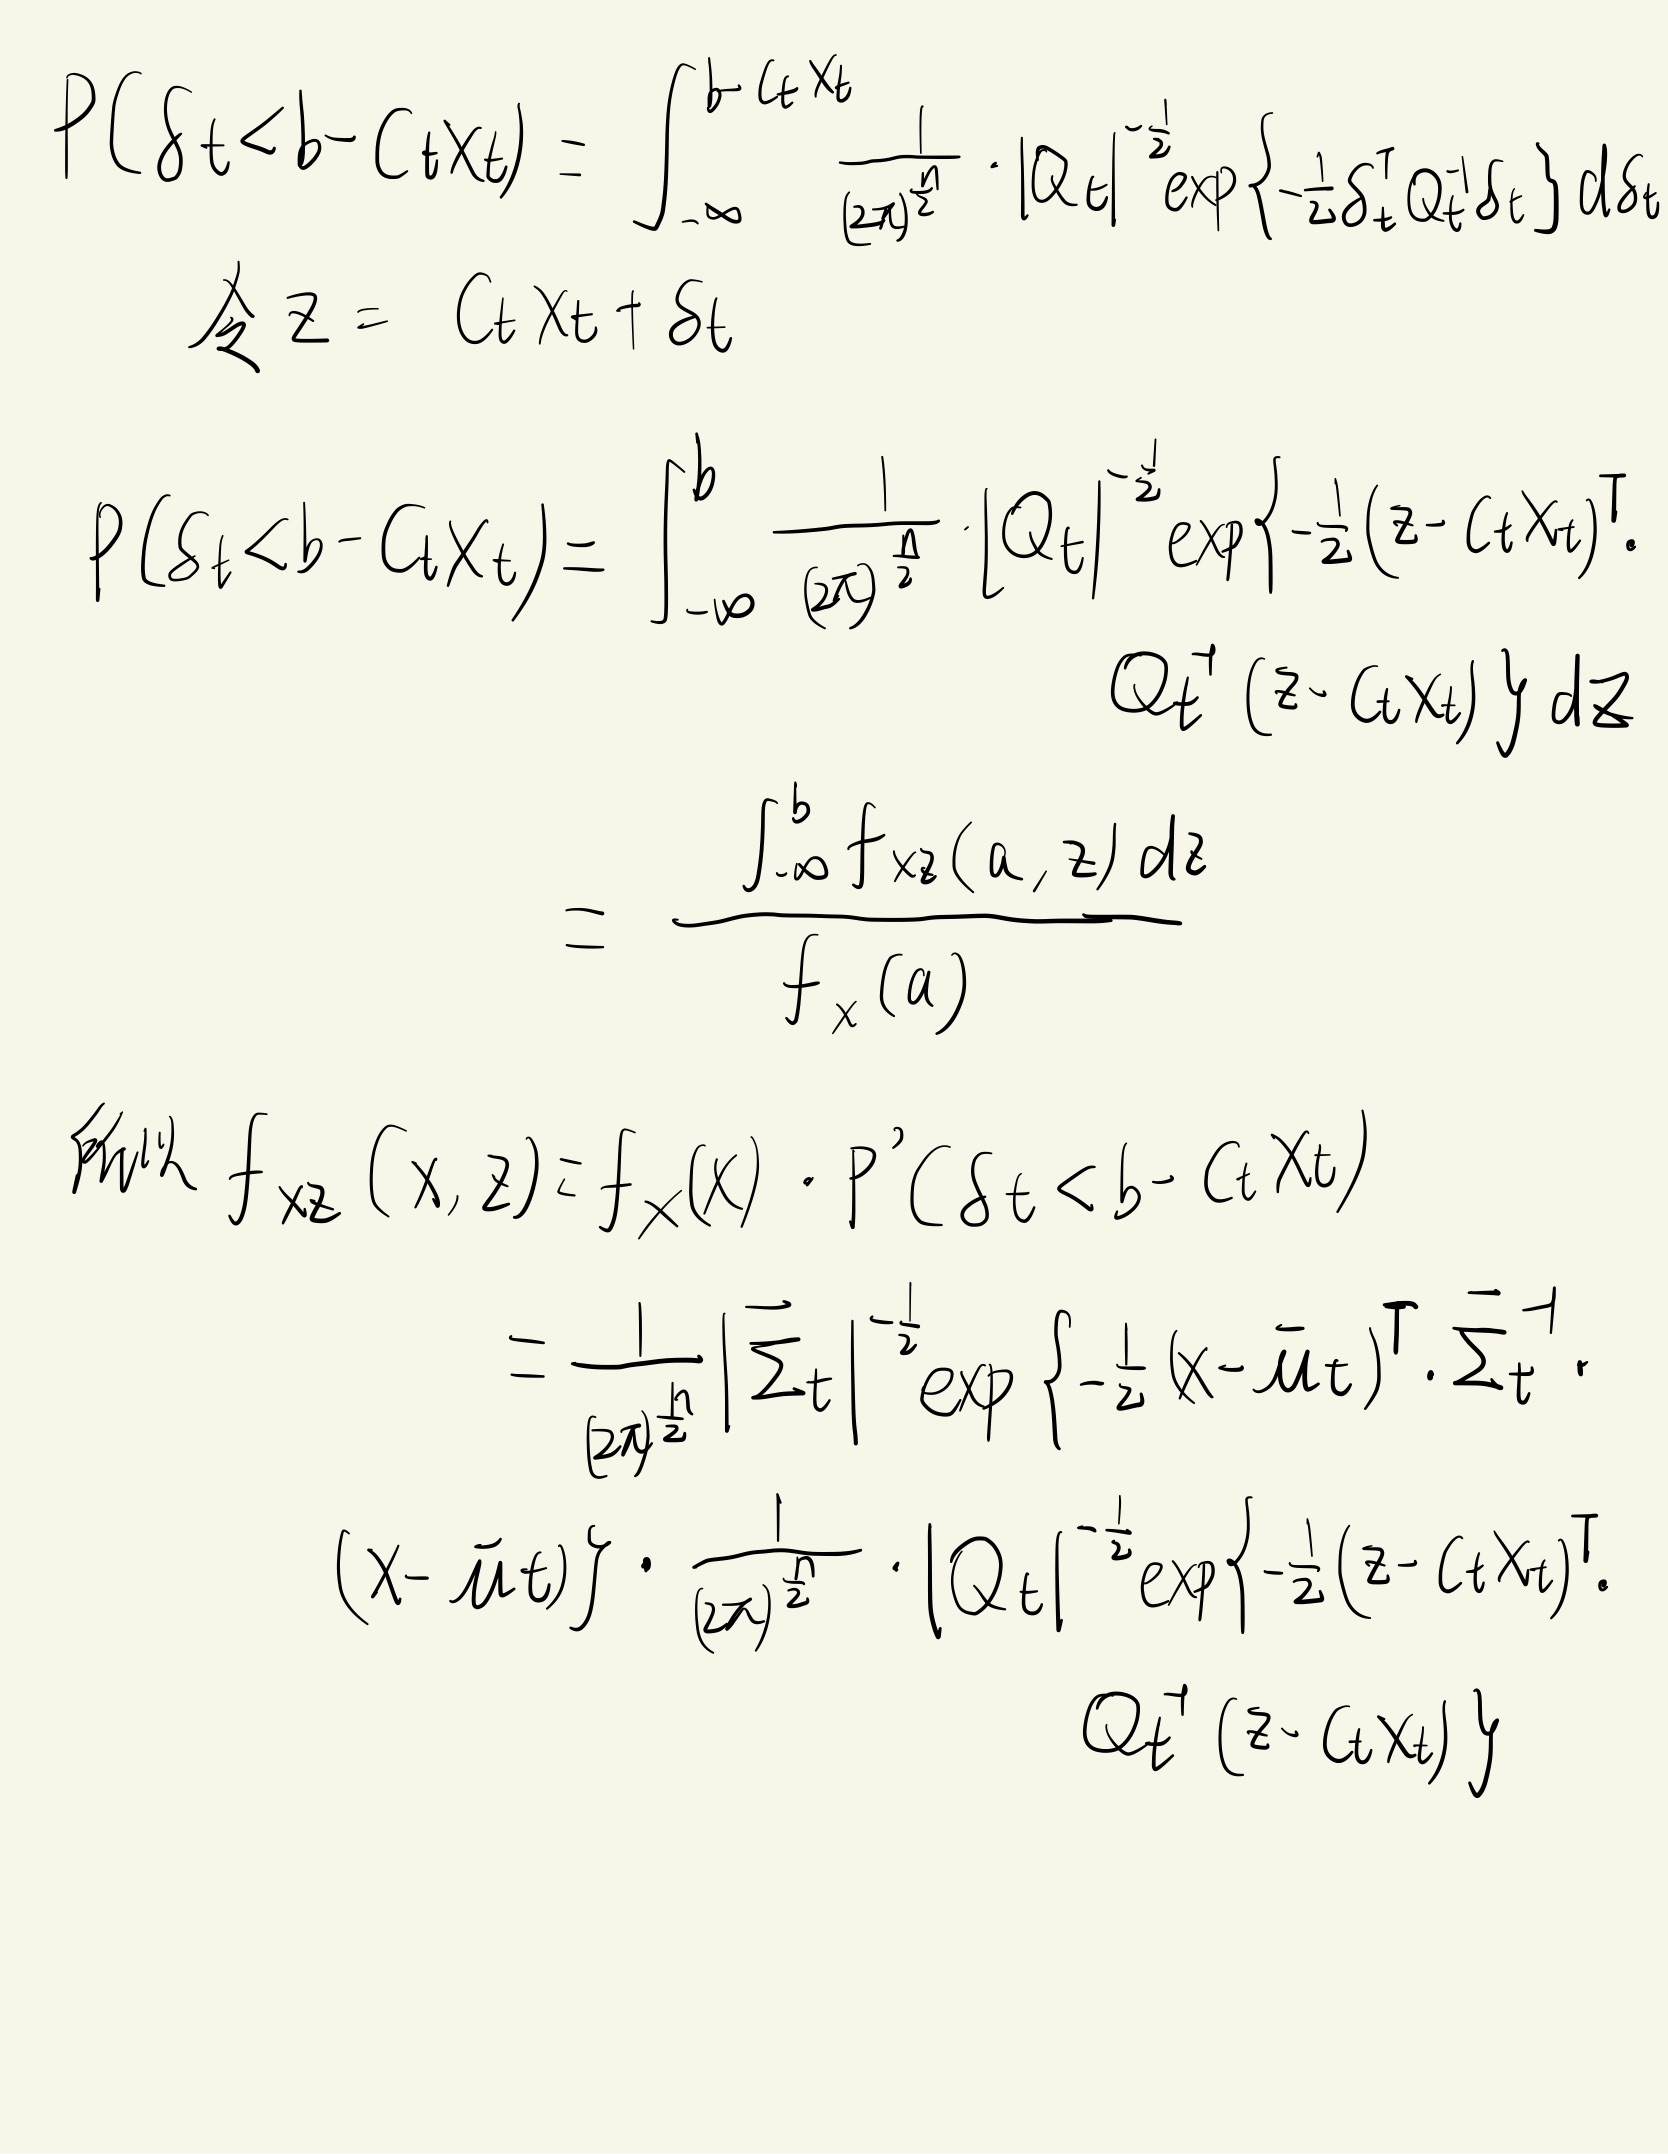 P(δt<b-CtXt) = ∫_{-∞}^{b-CtXt} \frac{1}{(2π)^{\frac{n}{2}}} · |Qt|^{-\frac{1}{2}} exp{-\frac{1}{2}δ_t^T Q_t^{-1} δt} dδt
令 z = CtXt + δt
P(δt<b-CtXt) = ∫_{-∞}^{b} \frac{1}{(2π)^{\frac{n}{2}}} · |Qt|^{-\frac{1}{2}} exp{-\frac{1}{2}(z-CtXt)^T ·
Q_t^{-1} (z-CtXt)} dz
= \frac{∫_{-∞}^{b} f_{xz}(a, z) dz}{f_x(a)}
所以 f_{xz}(x, z) = f_x(x) · P'(δt<b-CtXt)
= \frac{1}{(2π)^{\frac{n}{2}}} |\bar{Σ}_t|^{-\frac{1}{2}} exp{-\frac{1}{2}(x-\bar{u}t)^T · \bar{Σ}_t^{-1} ·
(x-\bar{u}t)} · \frac{1}{(2π)^{\frac{n}{2}}} · |Qt|^{-\frac{1}{2}} exp{-\frac{1}{2}(z-CtXt)^T ·
Q_t^{-1} (z-CtXt)}